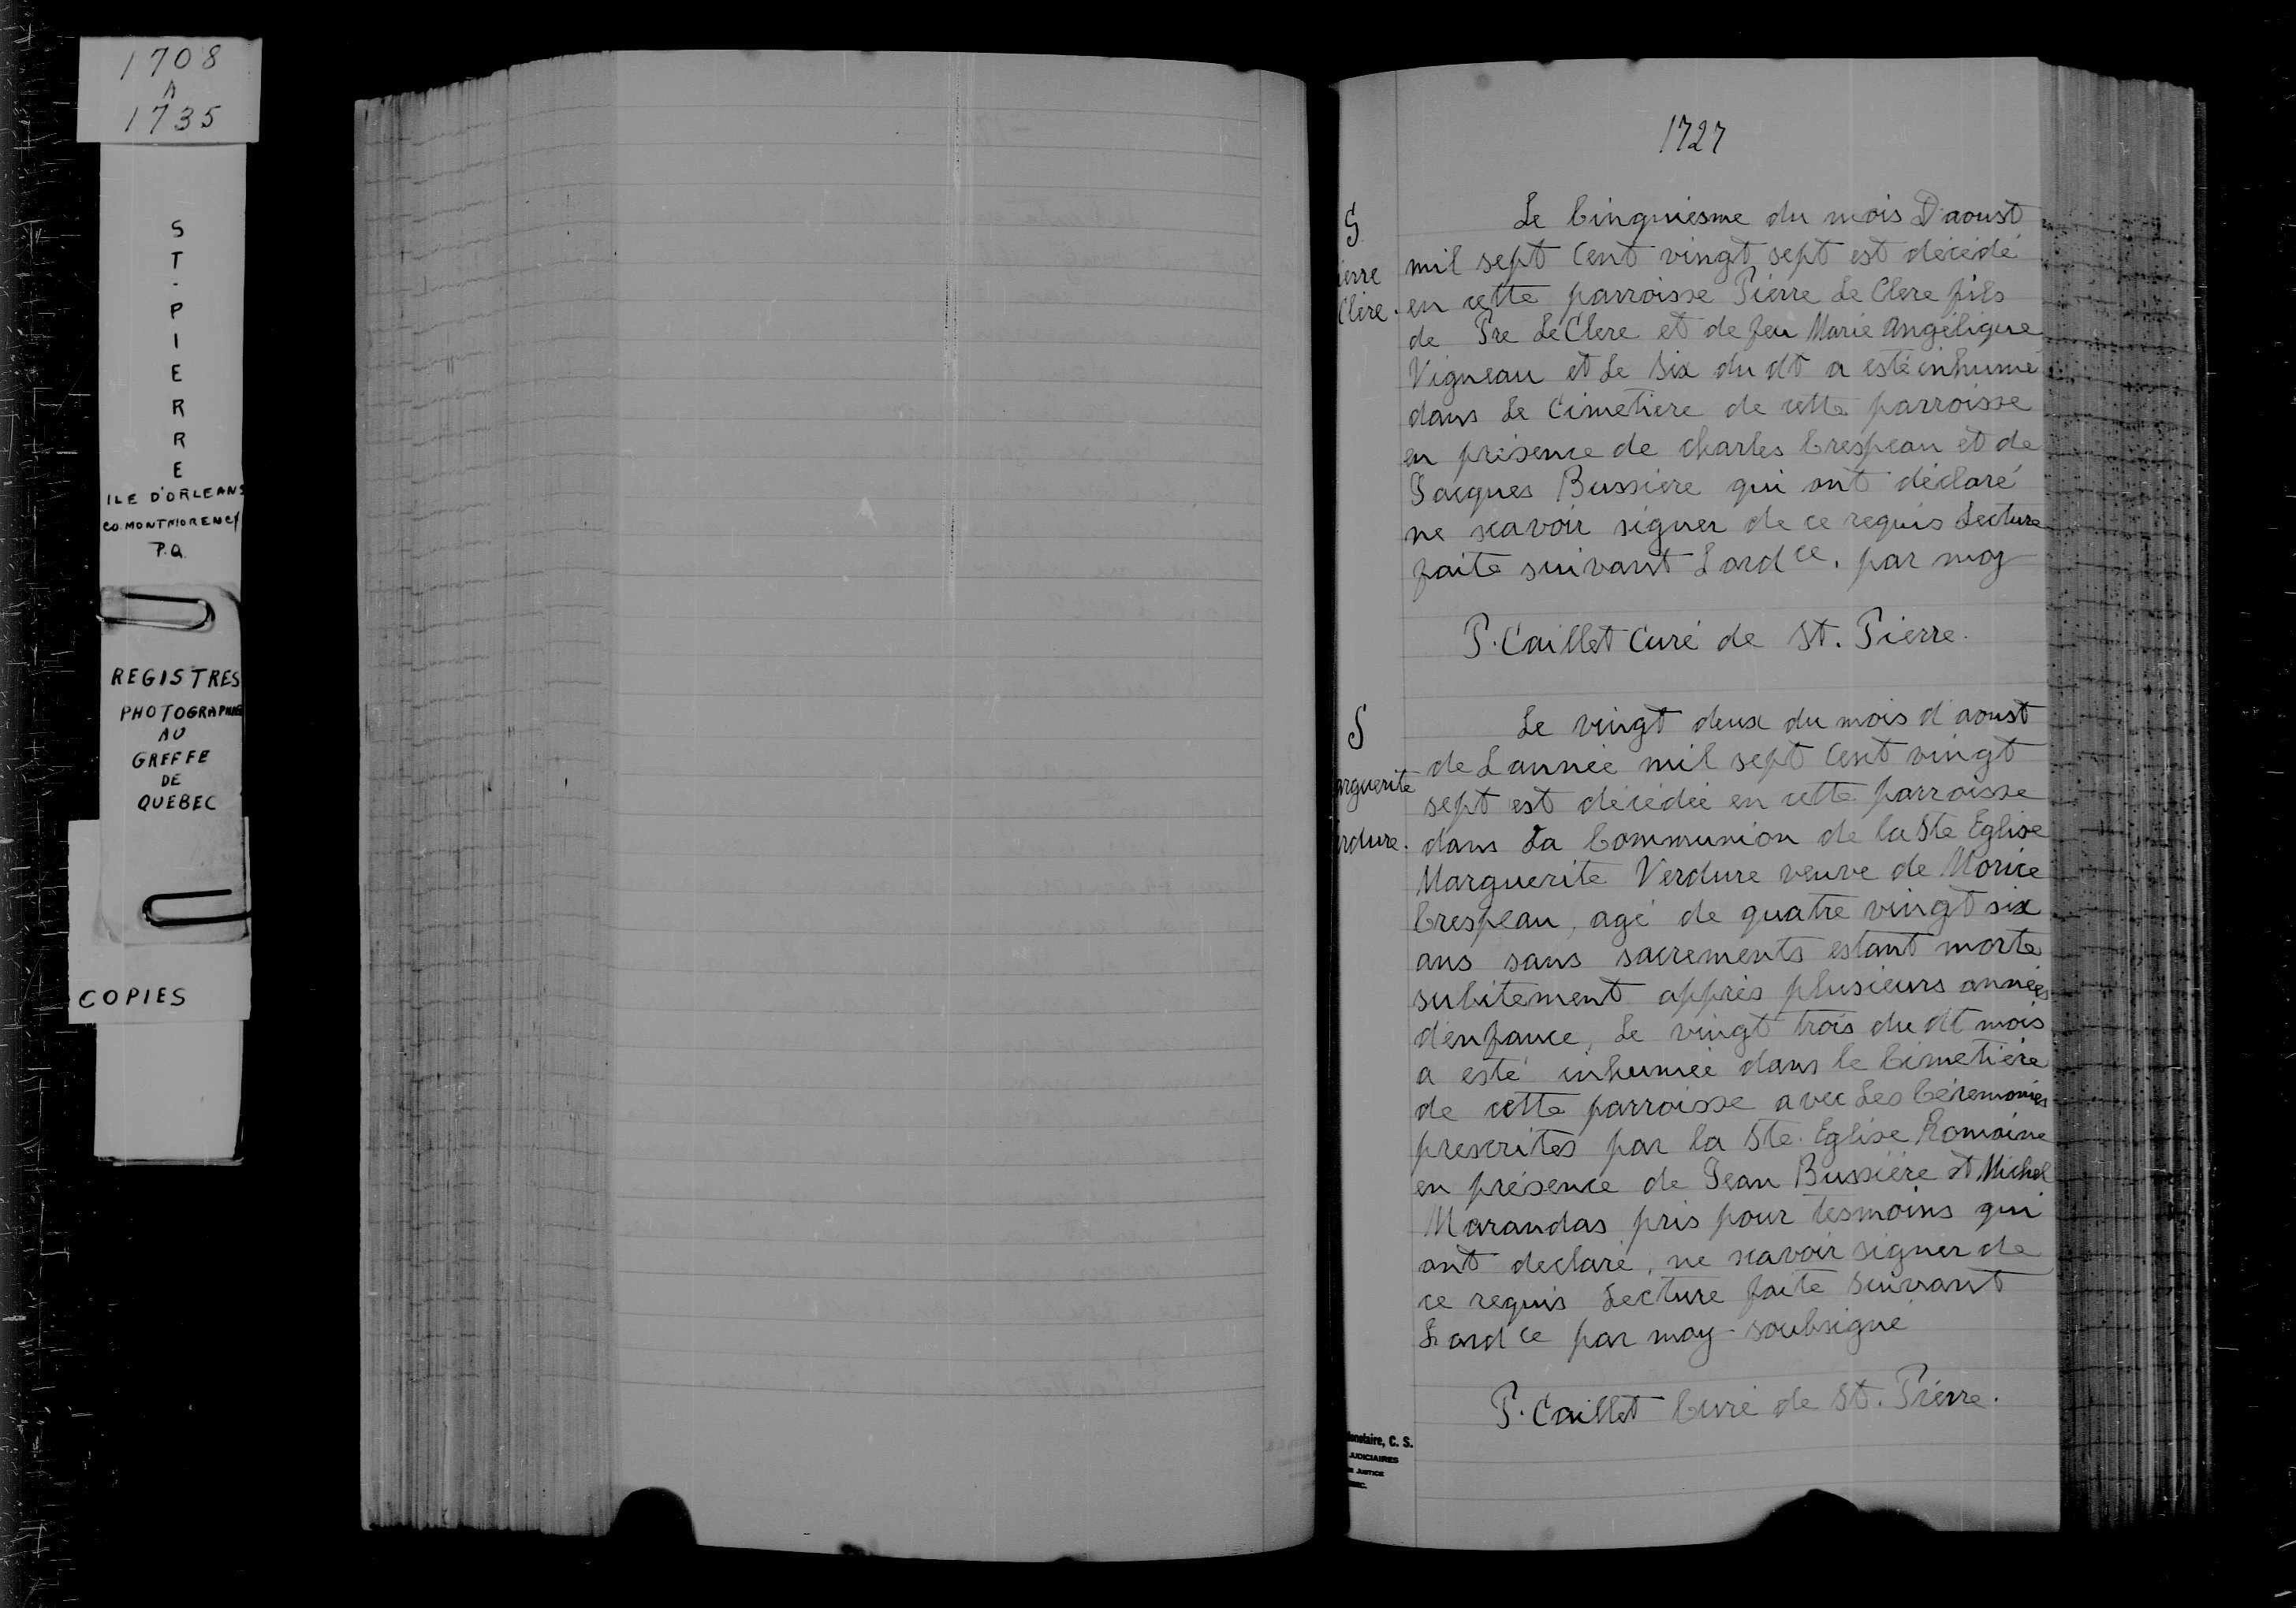 1708
A
1735
ST. PIERRE
ILE D'ORLEANS
CO. MONTMORENCY
P.Q.
REGISTRES
PHOTOGRAPHIE
AU
GREFFE
DE
QUEBEC
COPIES
1727
S
ierre
Clere.
Le Cinquiesme du mois D'aoust
mil sept Cent vingt sept est décédé
en cette parroisse Pierre Le Clere fils
de Pre LeClere et de feu Marie Angélique
Vigneau et Le Six du dt a esté inhumé
dans Le Cimetiere de cette parroisse
en présence de Charles Crespeau et de
Jacques Bussiere qui ont déclaré
ne scavoir signer de ce requis Lecture
faite suivant Lordce. par moy
P. Caillet Curé de St. Pierre.
S
arguerite
erdure.
Le vingt deux du mois d'aoust
de Lannée mil sept Cent vingt
sept est décédée en cette parroisse
dans La Communion de la Ste Eglise
Marguerite Verdure veuve de Morice
Crespeau, agé de quatre vingt six
ans sans sacrements estant morte
subitement apprès plusieurs années
d'enfance, Le vingt trois du dt mois
a esté inhumée dans le Cimetière
de cette parroisse avec Les Céremonies
prescrites par la Ste. Eglise Romaine
en présence de Jean Bussière et Michel
Marandas pris pour tesmoins qui
ont declaré, ne scavoir signer de
ce requis Lecture faite suivant
Lordce par moy soubsigné
P. Caillet Curé de St. Pierre.
onotaire, C. S.
JUDICIAIRES
JUSTICE